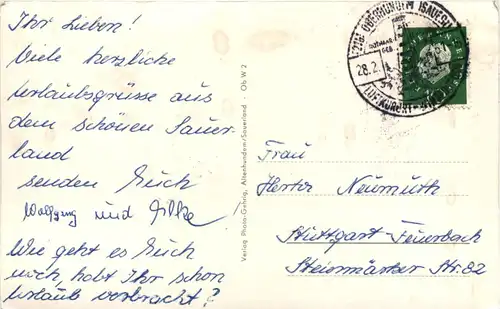 Ihr Lieben!
Viele herzliche
Urlaubsgrüsse aus
dem schönen Sauer-
land
senden Euch
Wolfgang und Silke
Wie geht es Euch
noch, habt Ihr schon
Urlaub verbracht?
Verlag Photo-Gehrig, Altenhundem/Sauerland · Ob W 2
OBERHUNDEM (SAUERL
28.2.
LUFTKURORT
Frau
Herta Neumuth
Stuttgart-Feuerbach
Steiermärker Str. 82